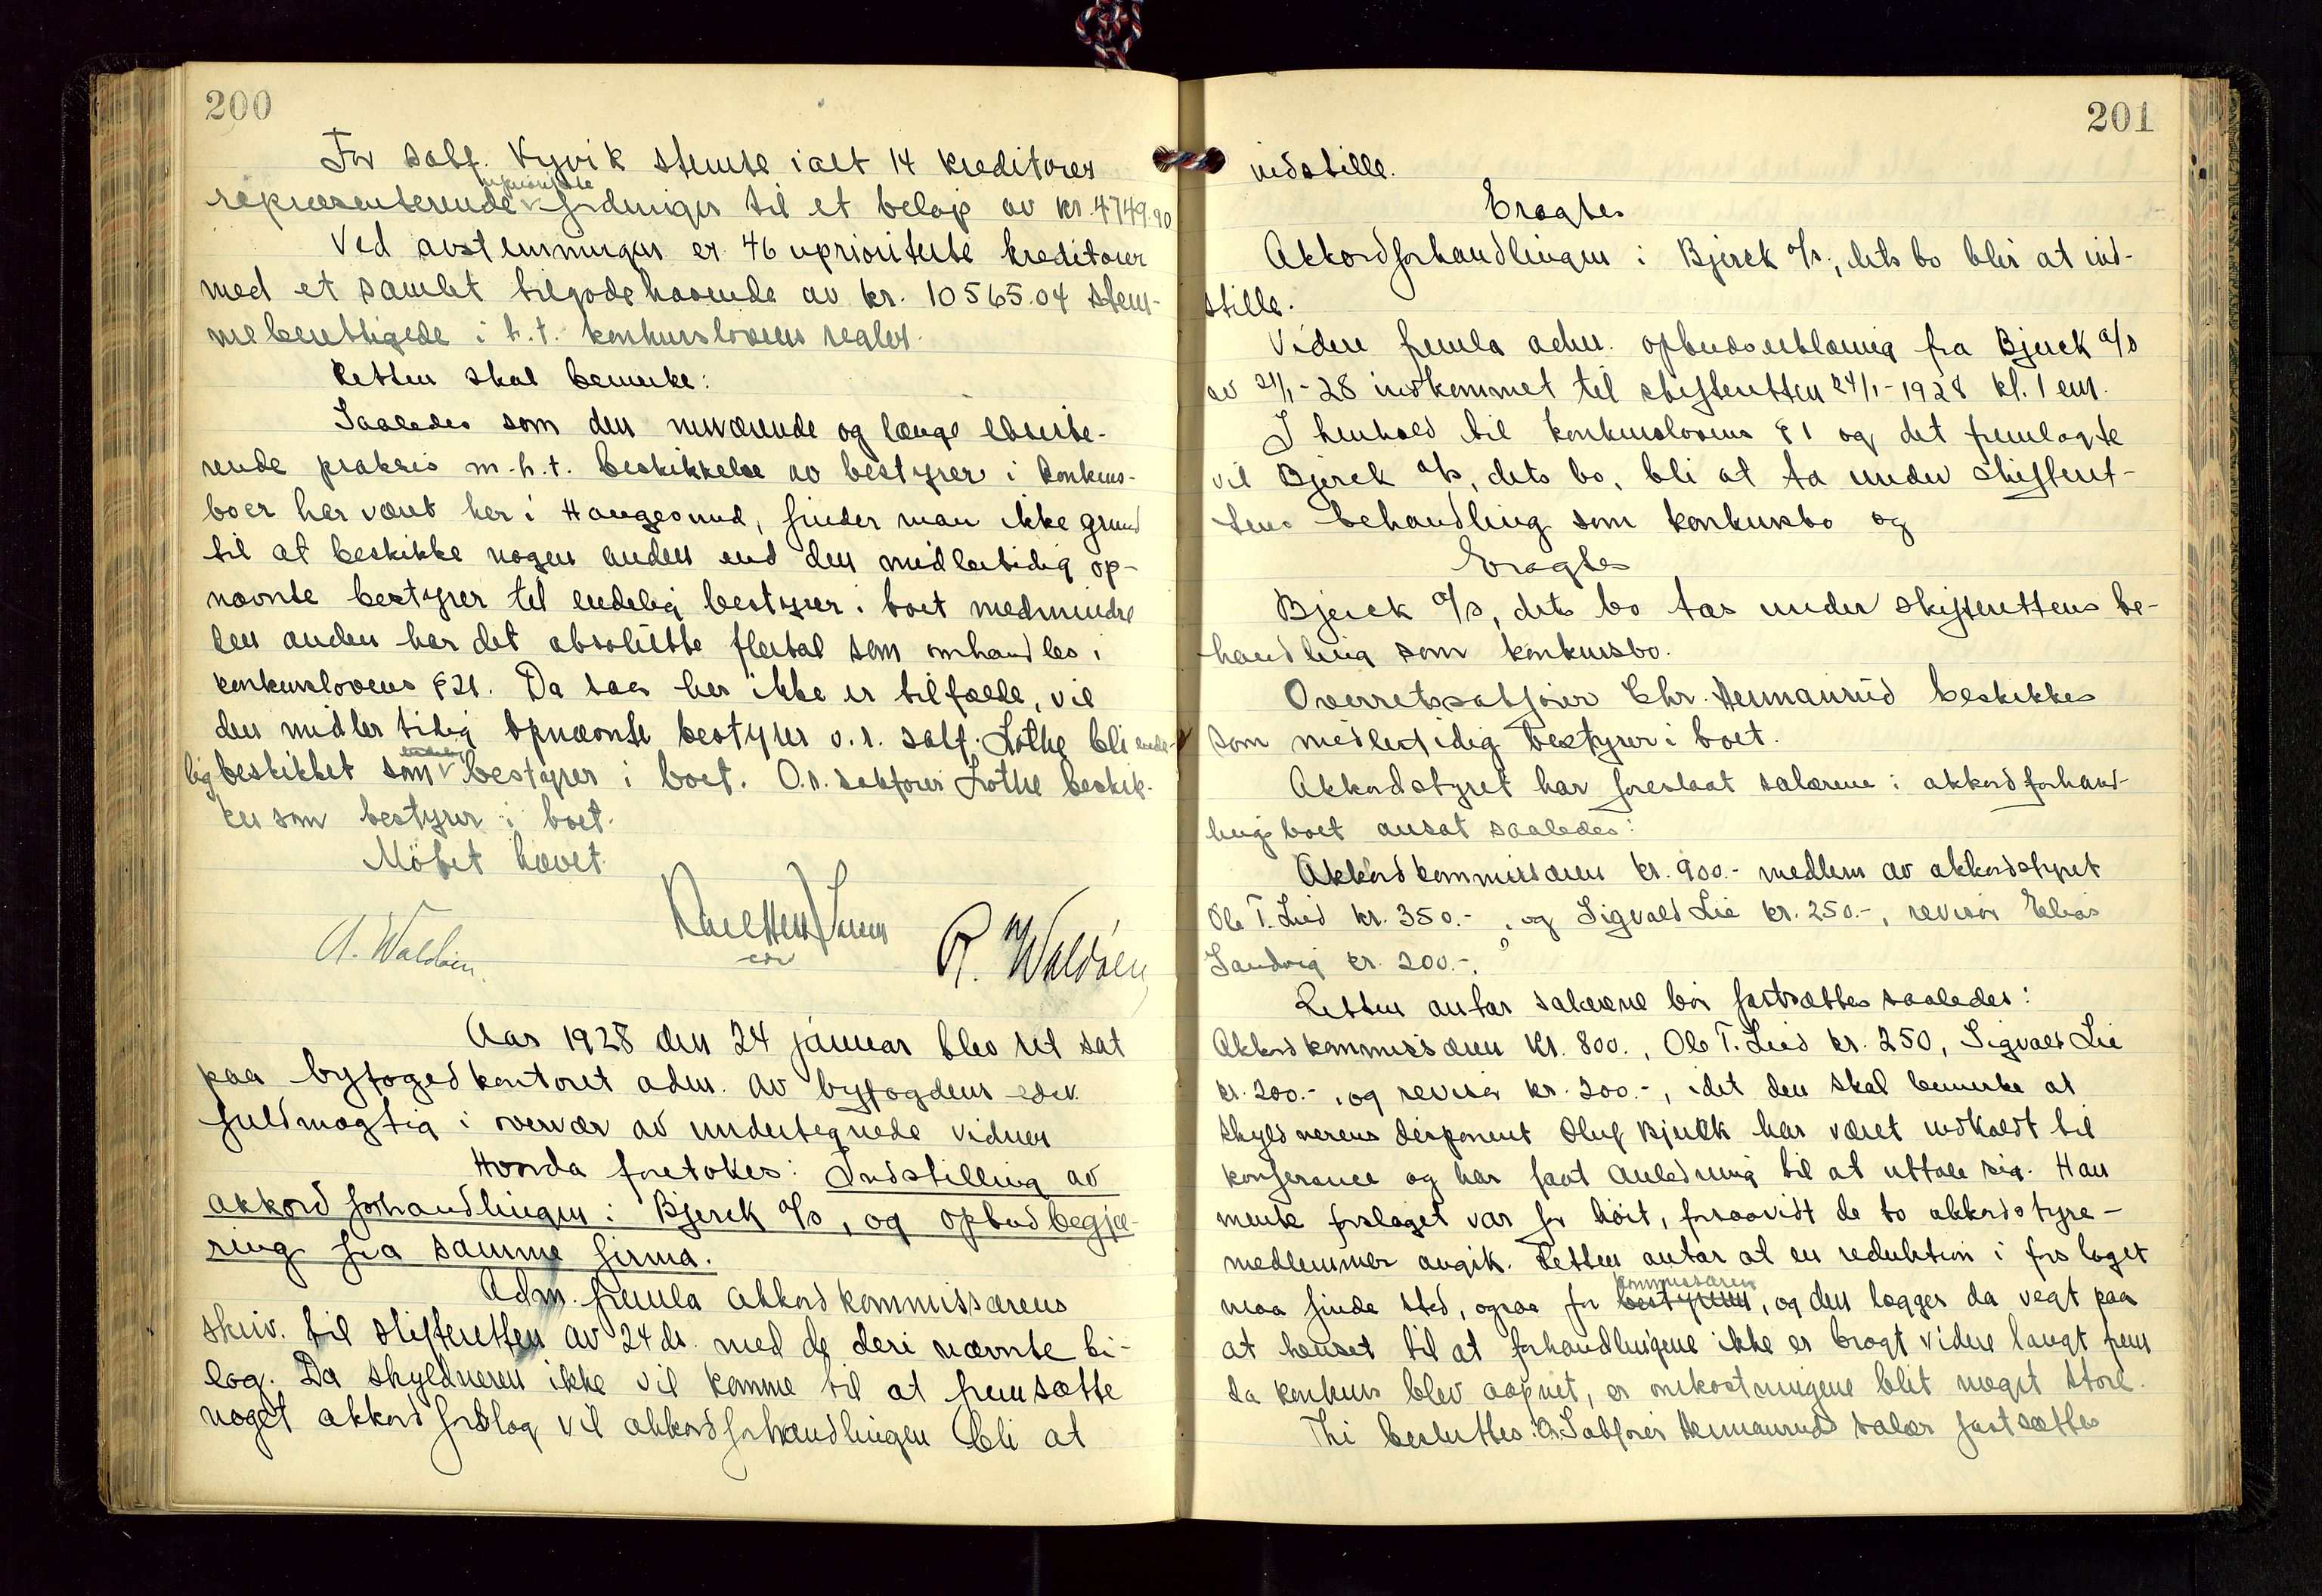 200
For sakf. Vyvik stemte ialt 14 kreditorer
uprioriterte
repræsenterende fordringer til et beløp av kr. 4749.90
Ved avstemningen er 46 uprioriterte kreditorer
med et samlet tilgodehavende av kr. 10565.04 stem-
meberettigede i h.t. konkurslovens regler.
Retten skal bemerke:
Saaledes som den nuværende og længe eksiste-
rende praksis m.h.t. beskikkelse av bestyrer i konkurs-
boer har været her i Haugesund, finder man ikke grund
til at beskikke nogen anden end den midlertidig op-
nævnte bestyrer til endelig bestyrer i boet medmindre
den anden har det absolutte flertal som omhandles i
konkurslovens §21. Da saa her ikke er tilfælde, vil
den midlertidig opnævnte bestyrer o.r. sakf. Lothe bli ende-
lig beskikket som bestyrer i boet. O.r. sakfører Lothe beskik-
kes som bestyrer i boet.
Møtet hævet.
A. Waldøen
R. Waldøen
Aar 1928 den 24 januar blev ret sat
paa byfogedkontoret adm. av byfogdens edsv.
fuldmægtig i overvær av undertegnede vidner
Hvorda foretokes: Indstilling av
akkordforhandlingen i Bjerck A/S, og opbudbegjæ-
ring fra samme firma.
Adm. fremla akkordkommissærens
skriv. til skifteretten av 24 ds. med de deri nævnte bi-
lag. Da skyldneren ikke vil komme til at fremsætte
noget akkordforslag vil akkordforhandlingen bli at
201
indstille.
Eragtes
Akkordforhandlingen i Bjerck A/S, dets bo blir at ind-
stille.
Videre fremla adm. opbudserklæring fra Bjerck A/S
av 21/1-28 indkommet til skifteretten 24/1-1928 kl. 1 em.
I henhold til konkurslovens § 1 og det fremlagte
vil Bjerck A/S, dets bo, bli at ta under skifteret-
tens behandling som konkursbo og
Eragtes
Bjerck A/S, dets bo tas under skifterettens be-
handling som konkursbo.
Overretssakfører Chr. Hermanrud beskikkes
som midlertidig bestyrer i boet.
Akkordstyret har foreslaat salærene i akkordforhand-
lings boet ansat saaledes:
Akkordkommissæren kr. 900.- medlem av akkordstyret
Ole T. Lied kr. 350.-, og Sigvald Lie kr. 250.-, revisor Elias
Sandvig kr. 200.-.
Retten antar salærene bør fastsættes saaledes:
Akkordkommissæren kr. 800., Ole T. Lied kr. 250, Sigvald Lie
kr. 200.-, og revisor kr. 200.-, idet den skal bemerke at
skyldnerens disponent Oluf Bjerck har været indkaldt til
konferance og har faat anledning til at uttale sig. Han
mente forslaget var for høit, forsaavidt de to akkordstyre-
medlemmer angik. Retten antar at en reduktion i forslaget
kommissæren
maa finde sted, ogsaa for bestyreren, og den lægger da vegt paa
at henset til at forhandlingene ikke er bragt videre langt frem
da konkurs blev aapnet, er omkostningene blit noget store.
Thi besluttes: Or. Sakfører Hermanrud salær fastsættes